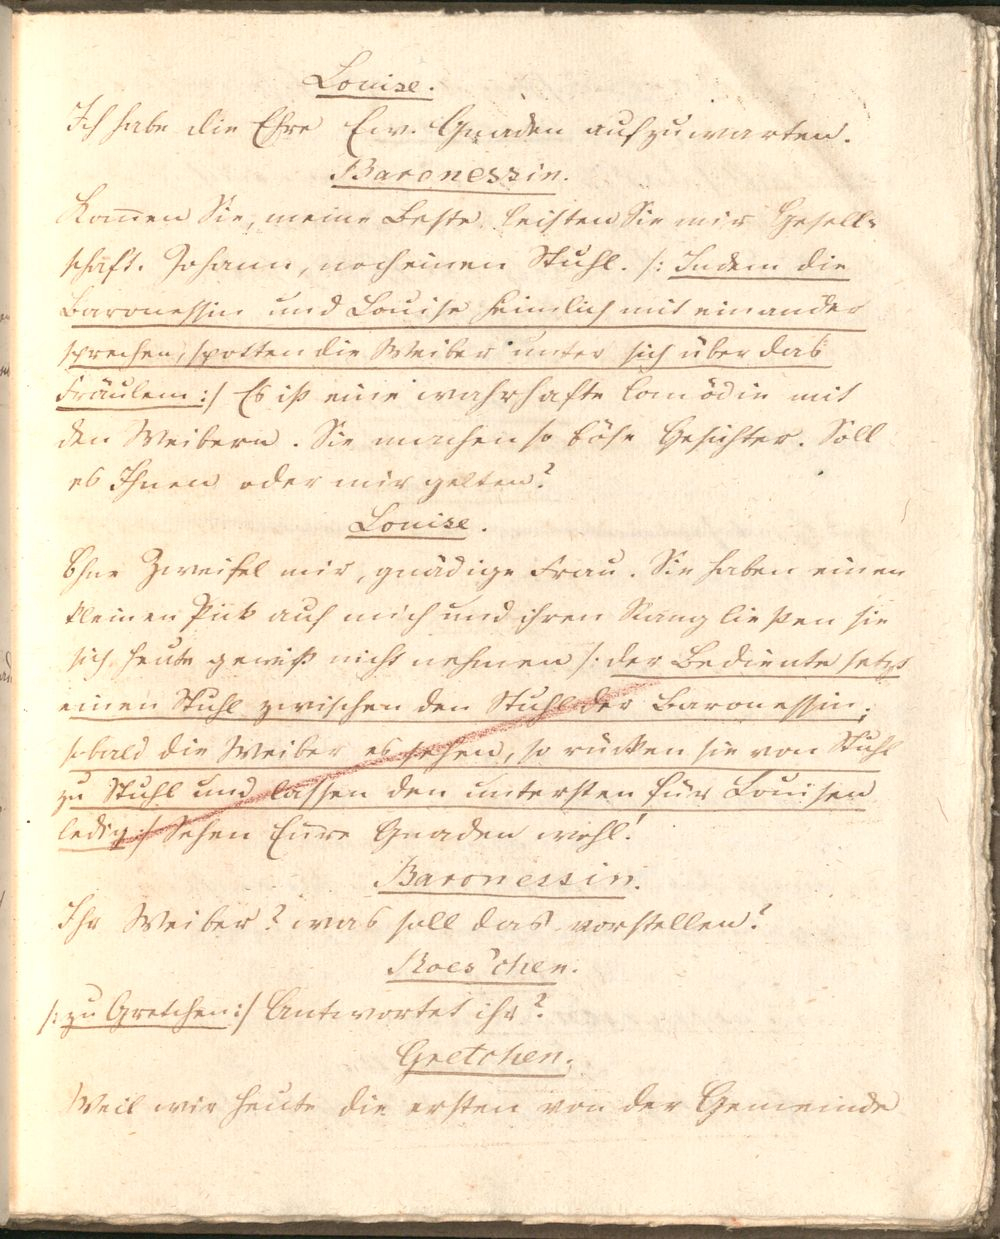 Louise.
Ich habe die Ehre Ew. Gnaden aufzuwarten.
Baronessin.
Kom̅en Sie, meine Beste, leisten Sie mir Gesell-
schaft. Johann, noch einen Stuhl. /: Indem die
Baronessin und Louise heimlich mit einander
sprechen, spotten die Weiber unter sich über das
Fräulein :/ Es ist eine wahrhafte Comödie mit
den Weibern. Sie machen so böse Gesichter. Soll
es Ihnen oder mir gelten?
Louise.
Ohne Zweifel mir, gnädige Frau. Sie haben einen
kleinen Pick auf mich und ihren Rang ließen sie
sich heute gewiß nicht nehmen /: der Bediente setzt
einen Stuhl zwischen den Stuhl der Baronessin;
sobald die Weiber es sehen, so rücken sie von Stuhl
zu Stuhl und lassen den untersten für Louisen
ledig :/ Sehen Eure Gnaden wohl!
Baronessin.
Ihr Weiber? was soll das vorstellen?
Roes'chen.
/: zu Gretchen :/ Antwortet ihr?
Gretchen.
Weil wir heute die ersten von der Gemeinde